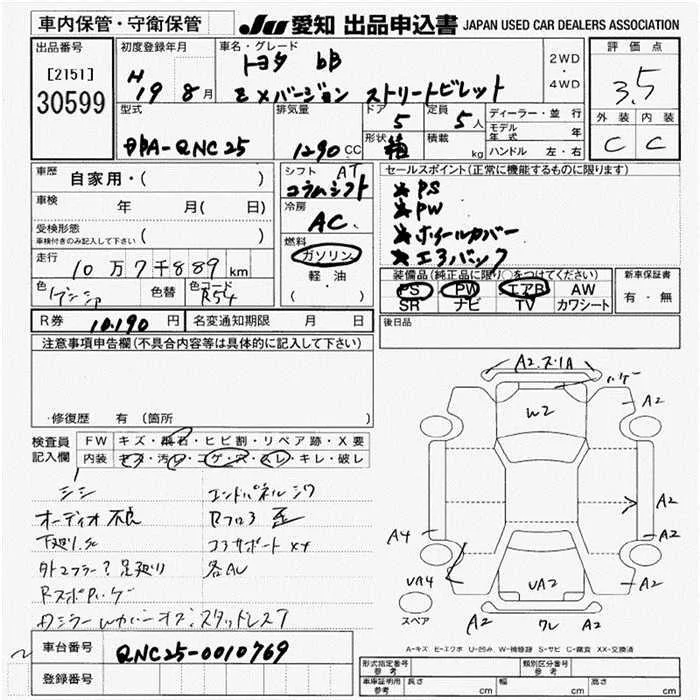 車内保管・守衛保管
JU 愛知 出品申込書 JAPAN USED CAR DEALERS ASSOCIATION
出品番号
[2151]
30599
初度登録年月
H 19 8 月
車名・グレード
トヨタ bB
Z Xバージョン ストリートビレット
2WD
・
4WD
評価点
3.5
外装 内装
C C
型式
DBA-QNC25
排気量
1290 CC
ドア
5
定員
5 人
形状
箱
積載
kg
ディーラー・並行
モデル年式 年
ハンドル 左・右
車歴
自家用・( )
車検
年 月( 日)
受検形態
車検付きのみ記入して下さい ( )
走行
10 万 7 千 889 km
色
色替
色コード
R54
シフト AT
コラムシフト
冷房
AC
燃料
ガソリン
軽・油
( )
セールスポイント(正常に機能するものに限ります)
★ PS
★ PW
★ ホイールカバー
★ エアバック
装備品(純正品に限り○をつけてください)
PS PW エアB AW
SR ナビ TV カワシート
新車保証書
有・無
R券 10,190 円
名変通知期限 月 日
後日品
注意事項申告欄(不具合内容等は具体的に記入して下さい)
・修復歴 有 (箇所 )
検査員記入欄
FW キズ・飛石・ヒビ割・リペア跡・X要
内装 キズ・汚れ・コゲ・穴・スレ・キレ・破レ
オーディオ不良
エンドパネルシワ
コアサポートX4
外マフラー? 足廻り
各AU
A2
A2
W2
A2
A2
A4
UA4
UA2
A2
A2
スペア
A-キズ E-エクボ U-凹み W-補修跡 S-サビ C-腐食 XX-交換済
車台番号
QNC25-0010769
登録番号
形式指定番号 参考
類別区分番号 参考
車庫証明用 参考
長さ cm
幅 cm
高さ cm